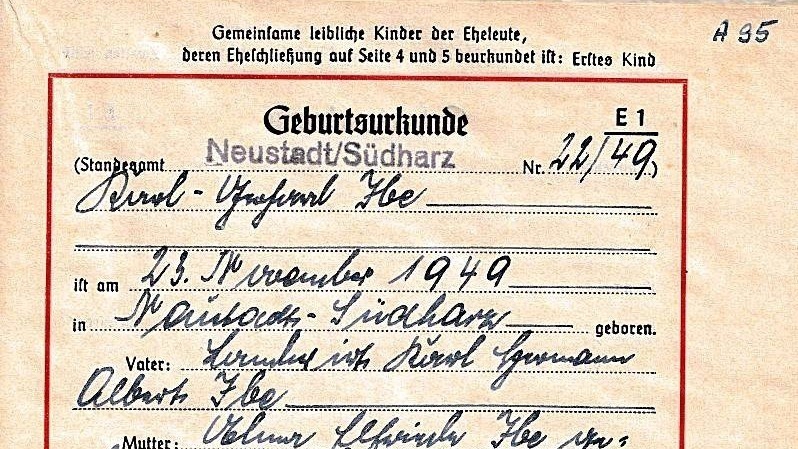 A 95
Gemeinsame leibliche Kinder der Eheleute,
deren Eheschließung auf Seite 4 und 5 beurkundet ist: Erstes Kind
Geburtsurkunde
E 1
(Standesamt Neustadt/Südharz Nr. 22/49)
Karl - Ibe
ist am 23. November 1949
in Neustadt - Südharz geboren.
Vater: Landwirt Karl Hermann
Albert Ibe
Mutter: Elfriede Ibe ge=